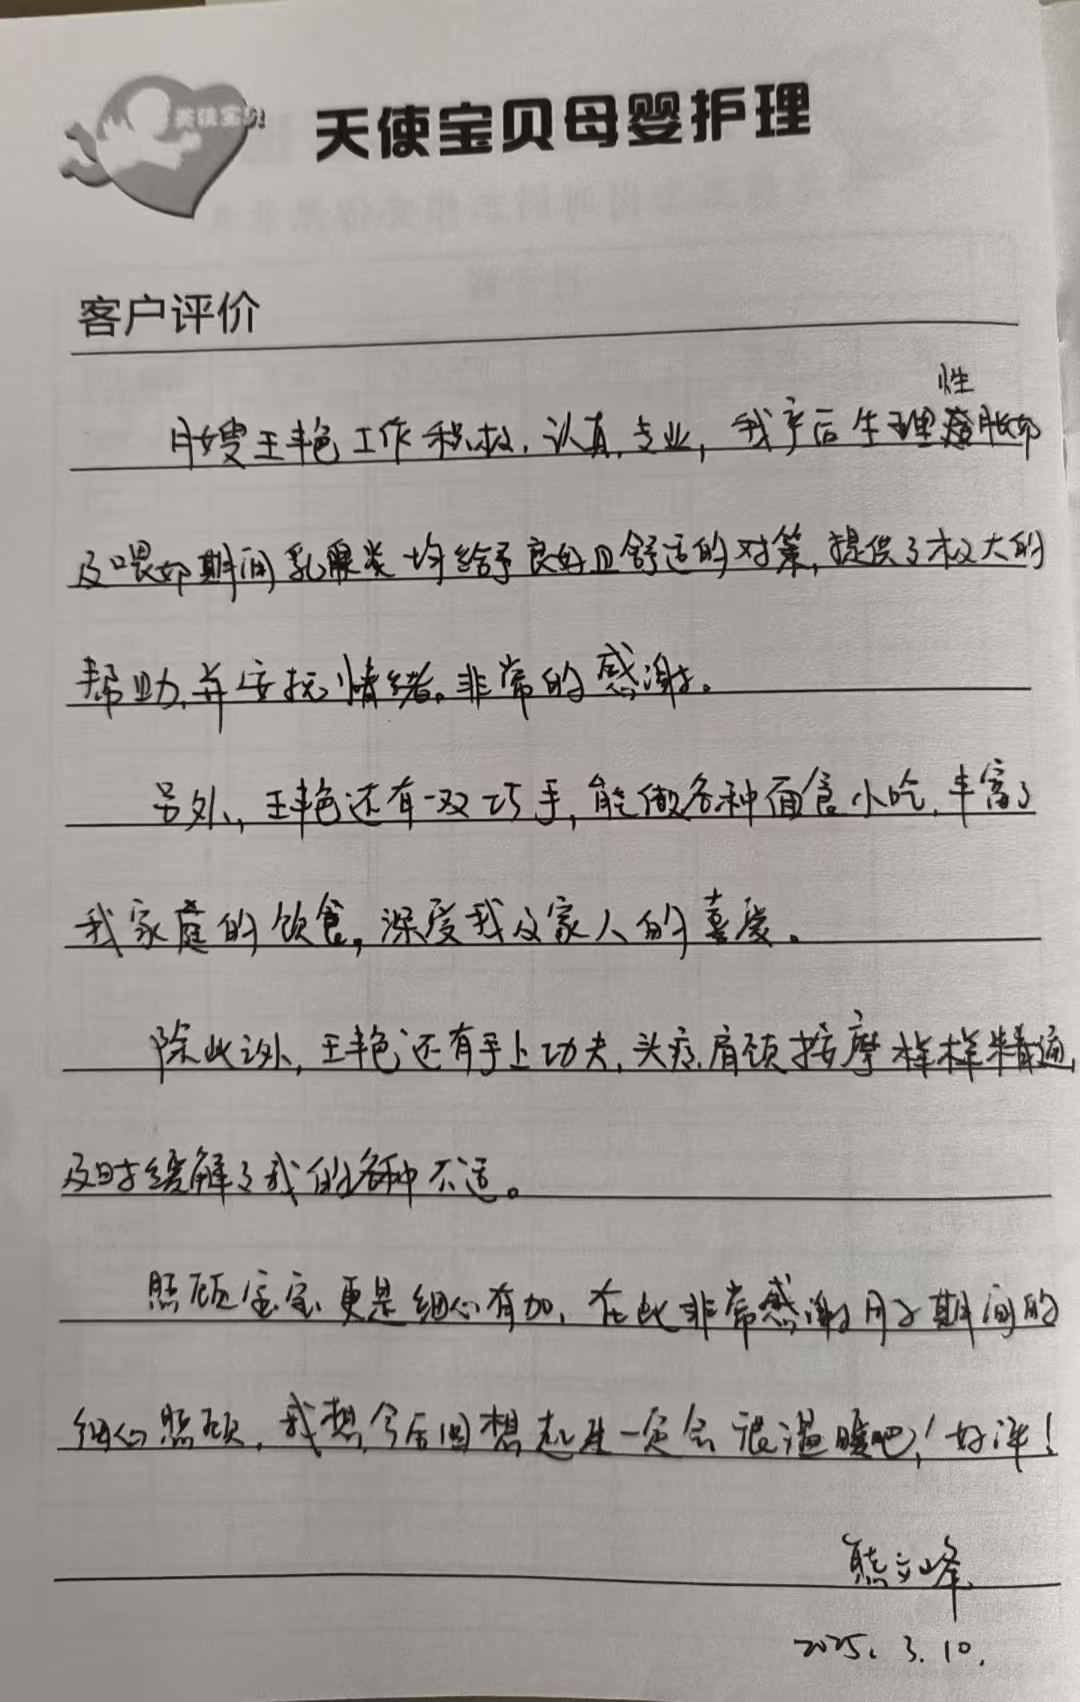 天使宝贝
天使宝贝母婴护理
客户评价
性
月嫂王艳工作积极、认真、专业,我产后生理胀奶
及喂奶期间乳腺炎均给予良好且舒适的对策,提供了极大的
帮助,并安抚情绪。非常的感谢。
另外,王艳还有一双巧手,能做各种面食小吃,丰富了
我家庭的饮食,深受我及家人的喜爱。
除此之外,王艳还有手上功夫,头疗、肩颈按摩样样精通,
及时缓解了我的各种不适。
照顾宝宝更是细心有加,在此非常感谢月子期间的
细心照顾,我想今后回想起来一定会很温暖吧!好评!
熊立峰
2025.3.10.